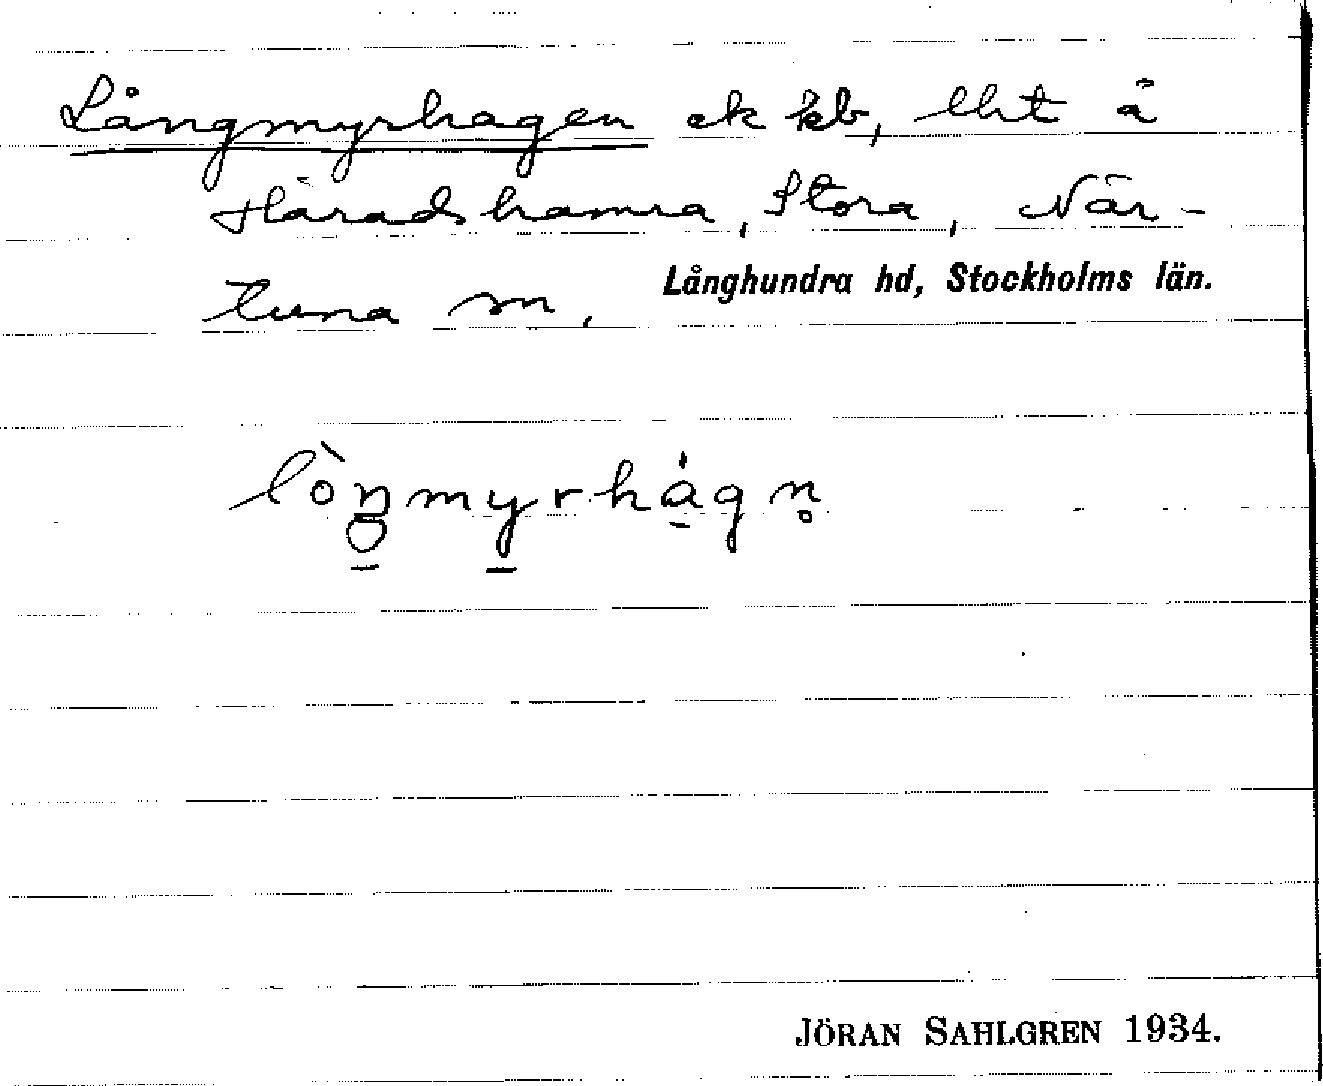 Långmyrhagen ek kb, lht å
Häradshamra, Stora, När-
tuna sn.
Långhundra hd, Stockholms län.
lòŋmyrhágn̥
JÖRAN SAHLGREN 1934.